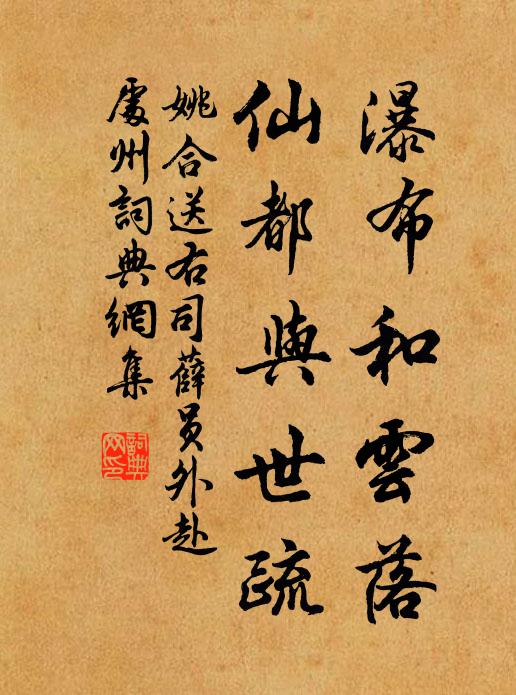 瀑布和雲落
仙都與世疏
姚合送右司薛員外赴
處州詞典網集
詞典网印